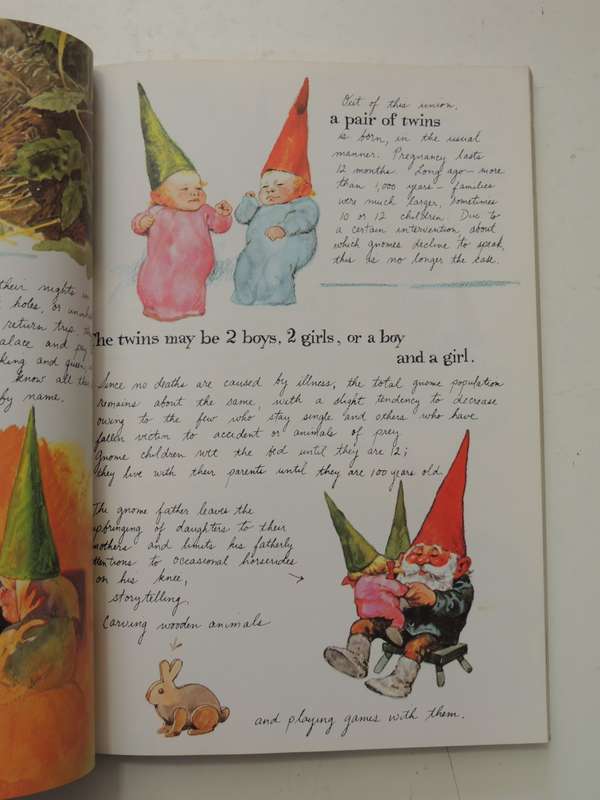 their nights in
holes, or
return trip.
palace and pay
king and queen
know all the
by name.
Out of this union,
a pair of twins
is born, in the usual
manner. Pregnancy lasts
12 months. Long ago — more
than 1,000 years — families
were much larger, sometimes
10 or 12 children. Due to
a certain intervention, about
which gnomes decline to speak,
this is no longer the case.
The twins may be 2 boys, 2 girls, or a boy
and a girl.
Since no deaths are caused by illness, the total gnome population
remains about the same, with a slight tendency to decrease
owing to the few who stay single and others who have
fallen victim to accident or animals of prey
gnome children wet the bed until they are 12;
they live with their parents until they are 100 years old.
The gnome father leaves the
upbringing of daughters to their
mothers and limits his fatherly
attentions to occasional horserides
on his knee,
storytelling,
Carving wooden animals
and playing games with them.